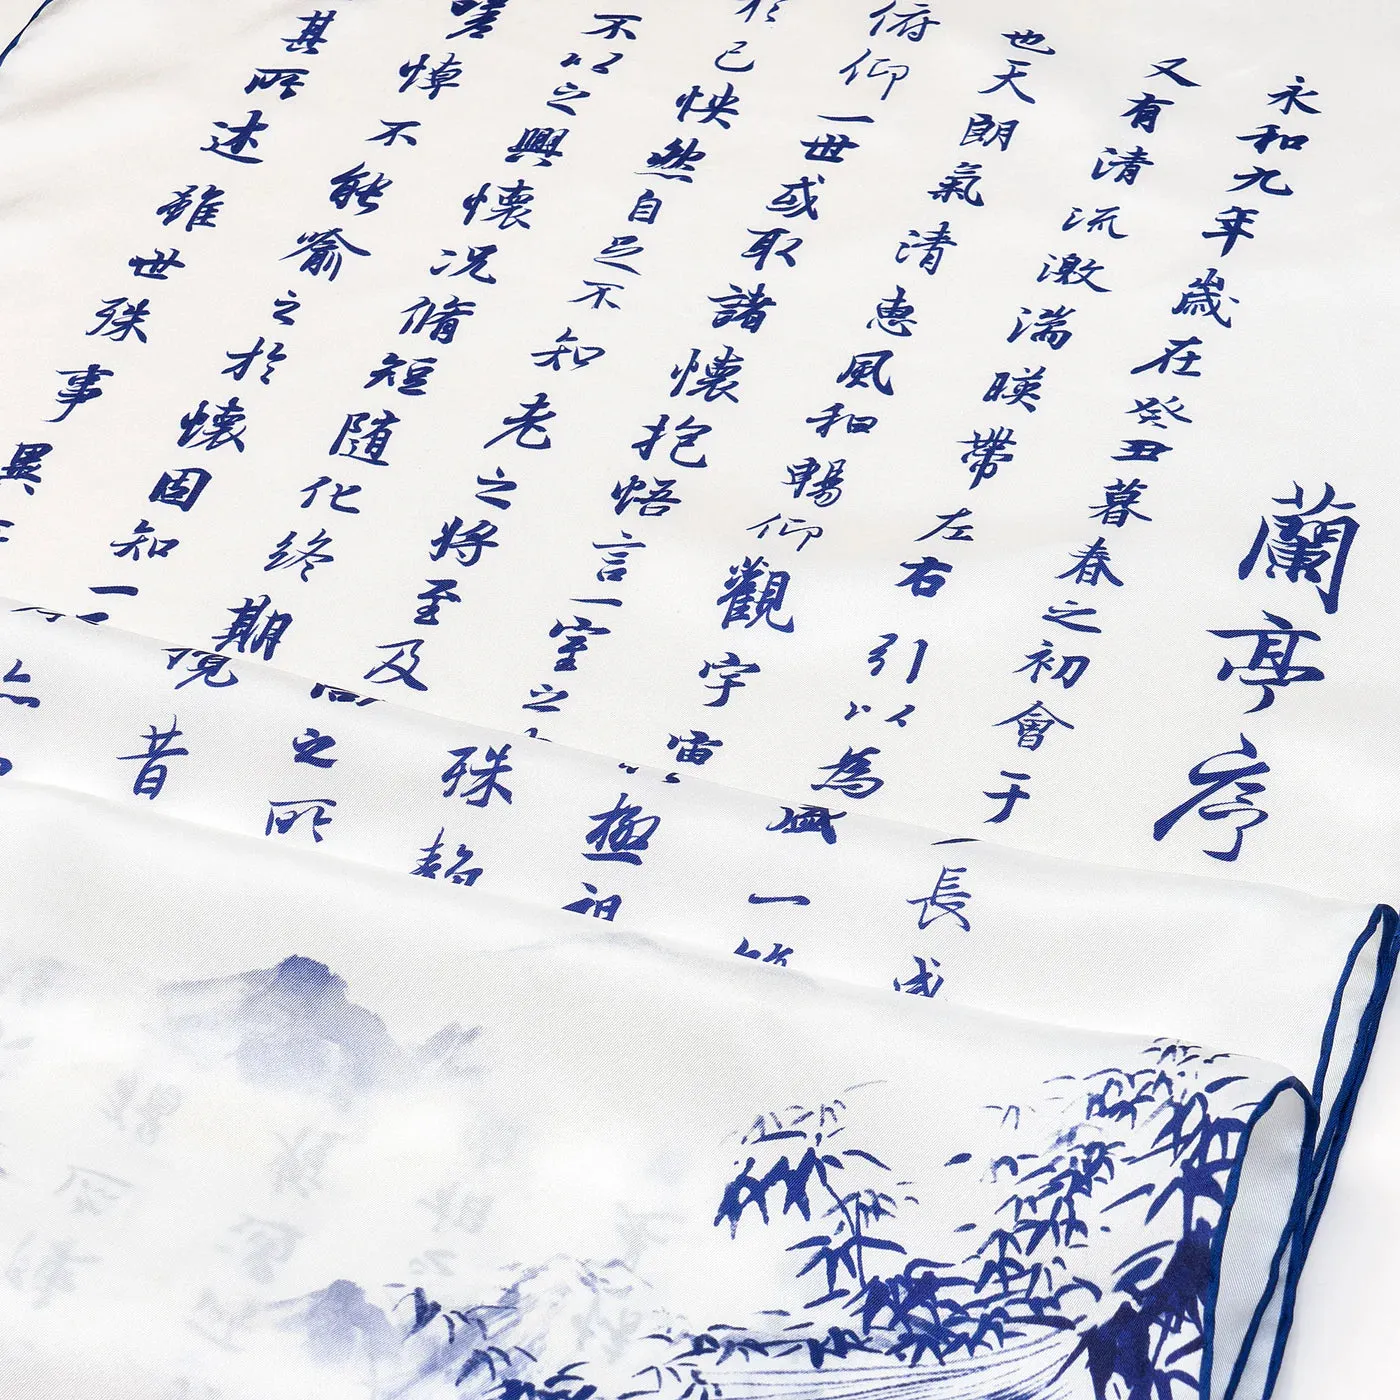 蘭亭序
永和九年歲在癸丑暮春之初會于
又有清流激湍暎帶左右引以為
也天朗氣清惠風和暢仰觀宇
俯仰一世或取諸懷抱悟言一室之
於己怏然自足不知老之將至及
不以之興懷況脩短隨化終期
嗟悼不能喻之於懷固知一
其所述雖世殊事異
長
盛一
極
殊
之所
昔